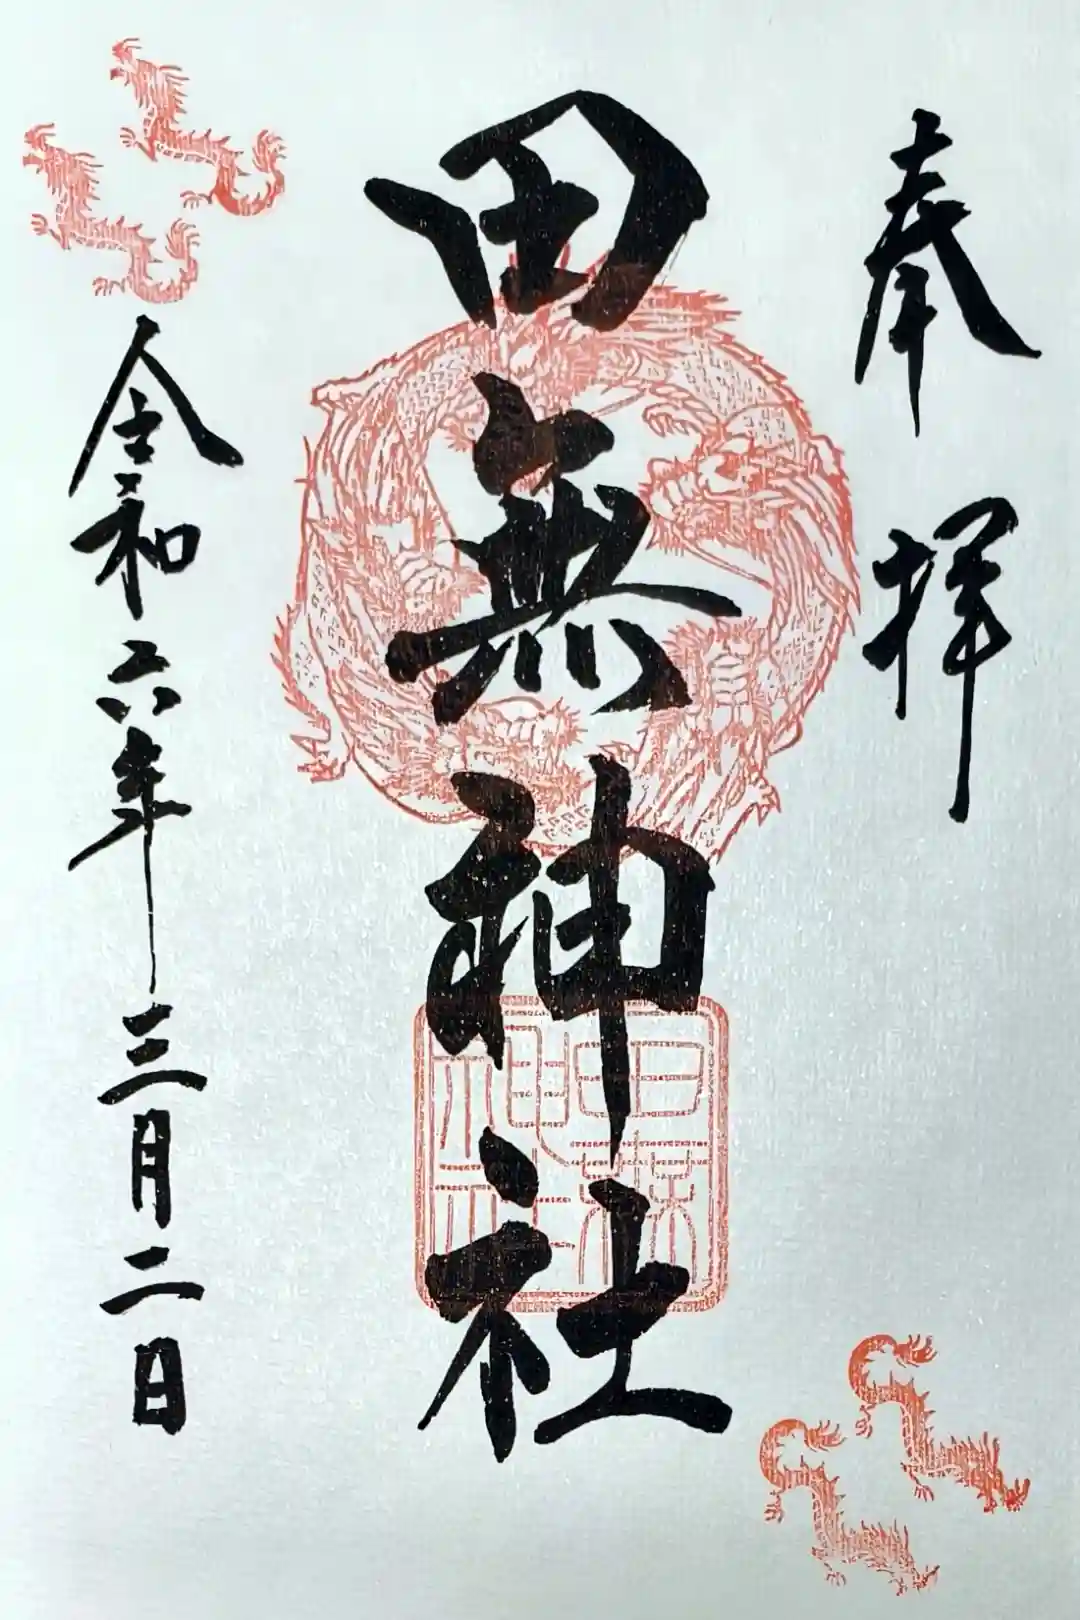 奉拝
田無神社
田無神社
令和六年三月二日